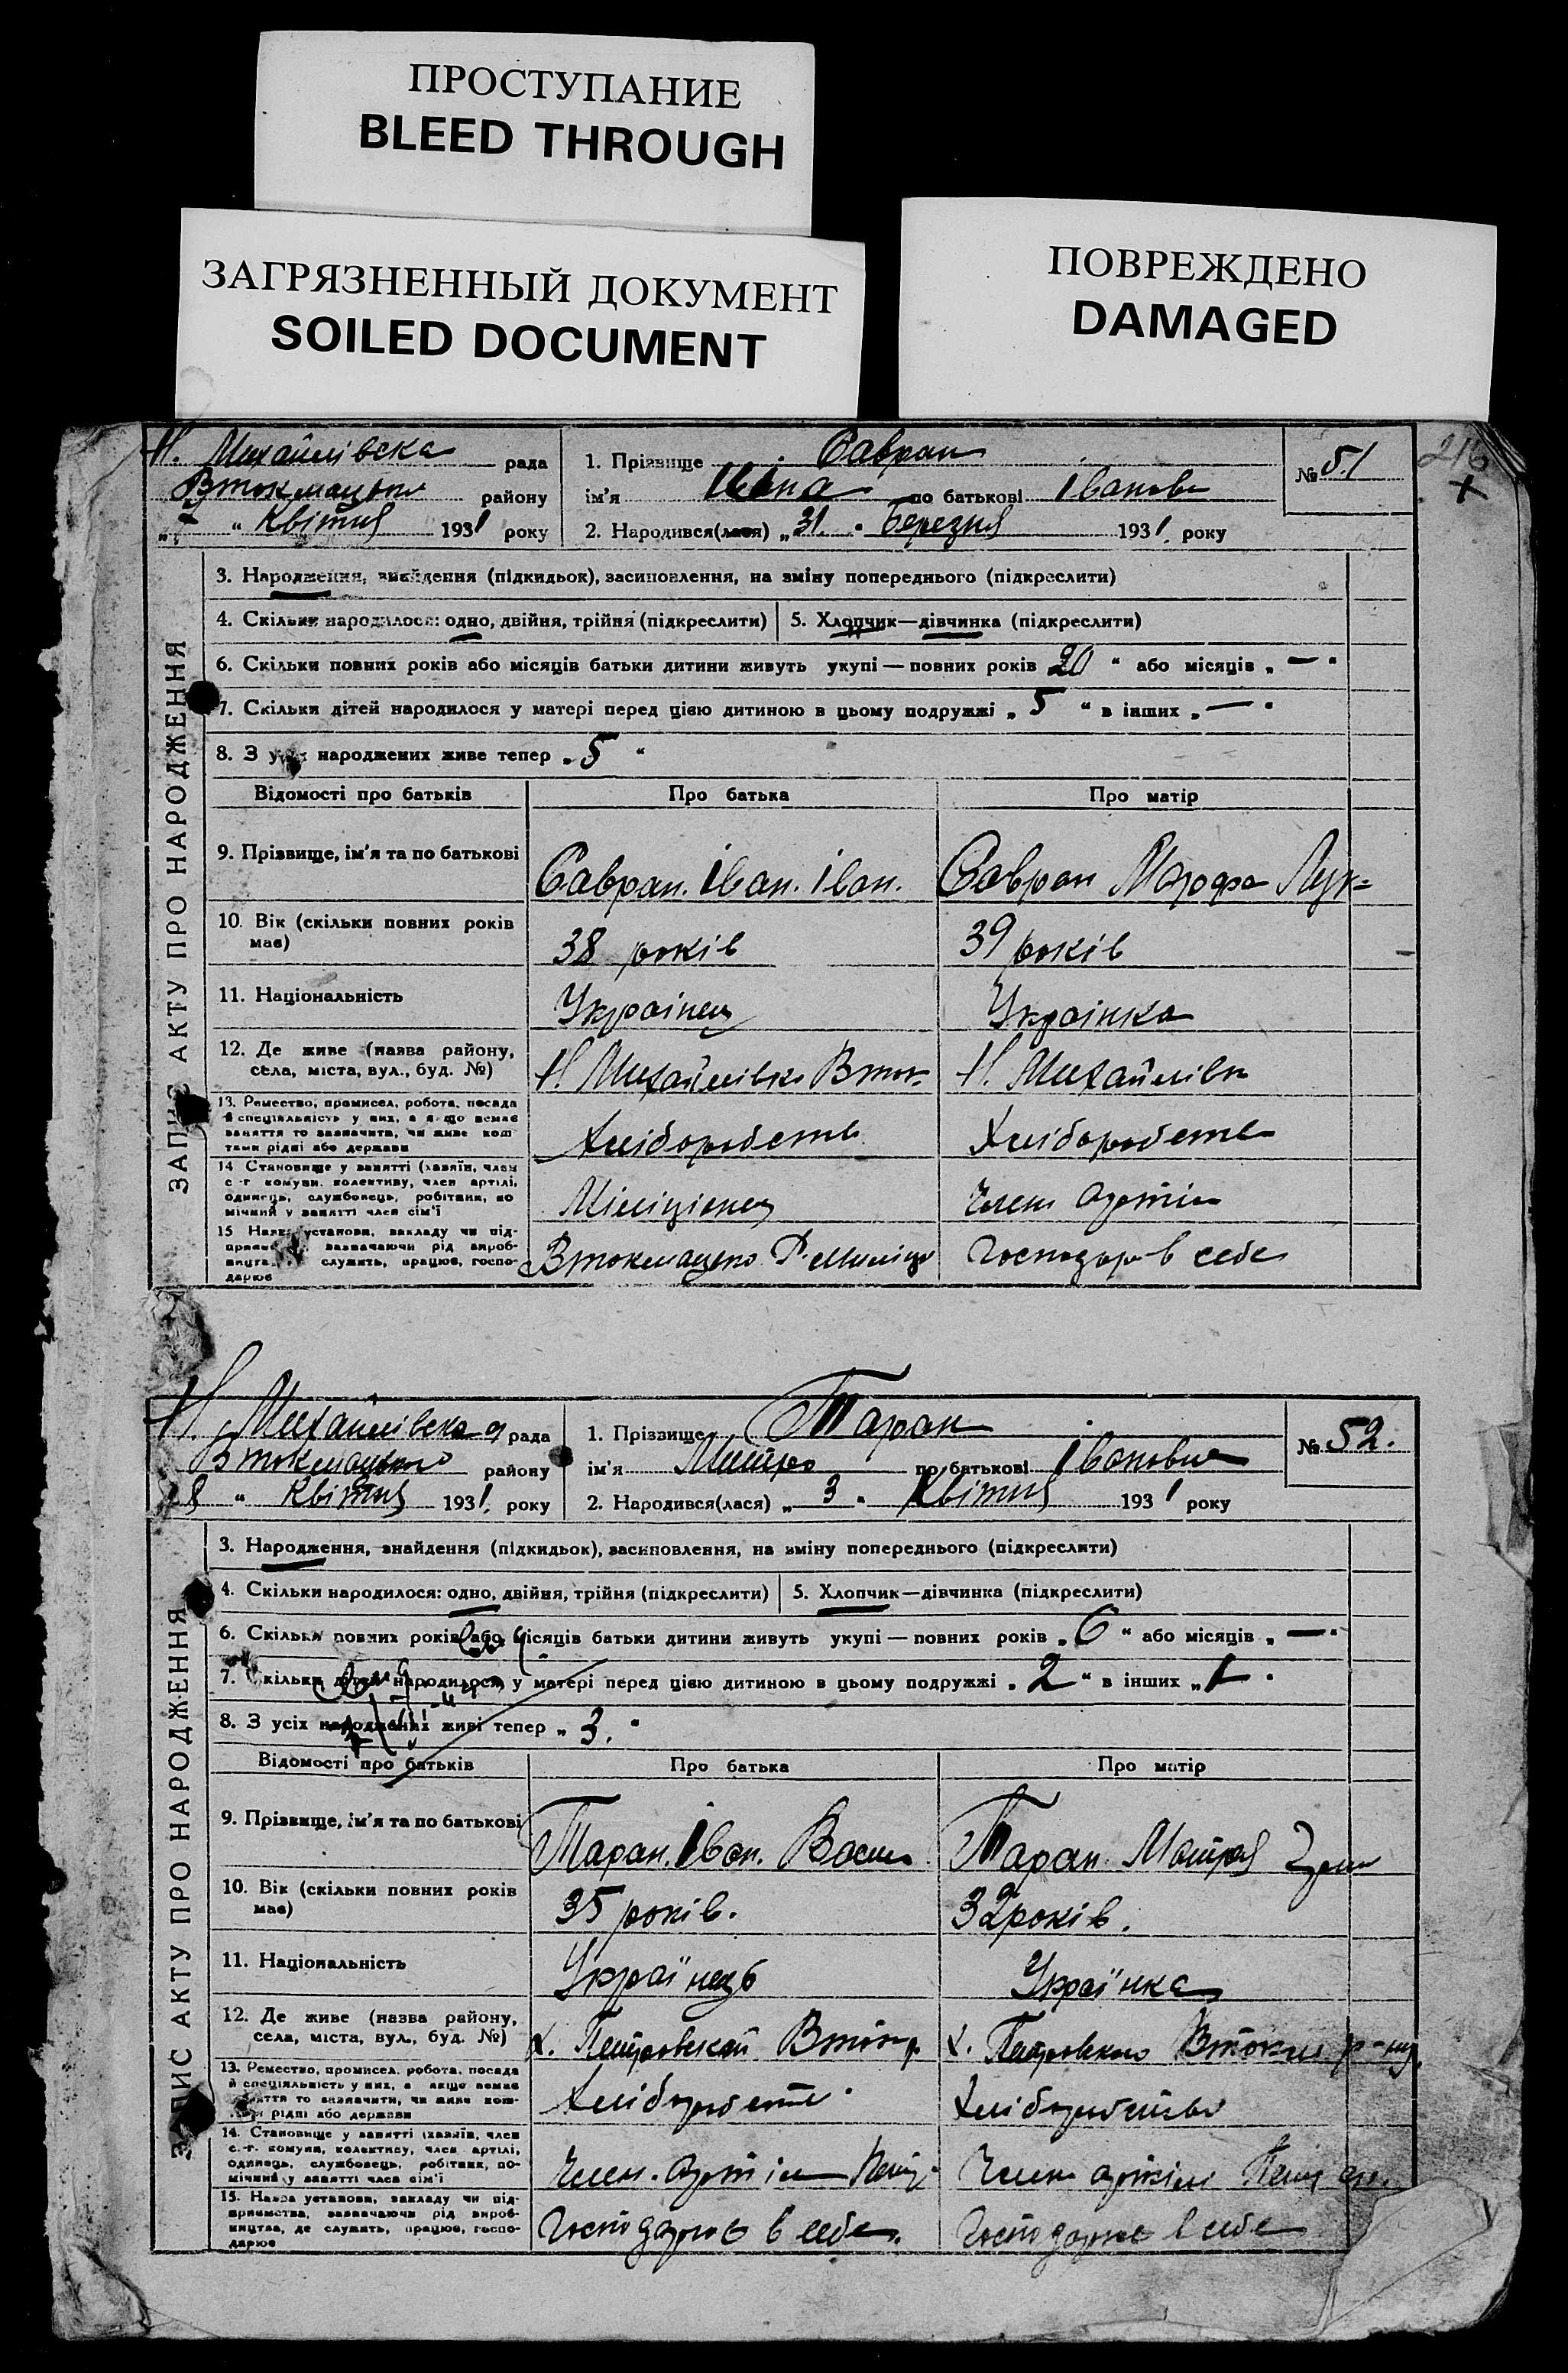 ПРОСТУПАНИЕ
BLEED THROUGH
ЗАГРЯЗНЕННЫЙ ДОКУМЕНТ
SOILED DOCUMENT
ПОВРЕЖДЕНО
DAMAGED
216
+
Н. Михайлівська рада
Втокмацького району
" Квітня 1931 року
1. Прізвище Савран
ім'я по батькові Іванова
2. Народився(лася) „31" Березня 1931 року
№ 51
ЗАПИС АКТУ ПРО НАРОДЖЕННЯ
3. Народження, знайдення (підкидьок), засиновлення, на зміну попереднього (підкреслити)
4. Скільки народилося: одно, двійня, трійня (підкреслити) 5. Хлопчик—дівчинка (підкреслити)
6. Скільки повних років або місяців батьки дитини живуть укупі — повних років 20 " або місяців „ — "
7. Скільки дітей народилося у матері перед цією дитиною в цьому подружжі „ 5 " в інших „ — "
8. З усіх народжених живе тепер „ 5 "
Відомості про батьків Про батька Про матір
9. Прізвище, ім'я та по батькові Савран. Іван. Іван. Савран Марфа Лук=
10. Вік (скільки повних років має) 38 років 39 років
11. Національність Українец Українка
12. Де живе (назва району, села, міста, вул., буд. №) Н. Михайлівка Вток. Н. Михайлівк
13. Ремество, промисел, робота, посада й спеціяльність у них, а якщо немає заняття то зазначити, чи живе коштами рідні або держави Хліборобств Хліборобств
14. Становище у занятті (хазяїн, член с.-г. комуни, колективу, член артілі, одинець, службовець, робітник, помічний у занятті член сім'ї Міліціонец Член Артіли
15. Назва установи, закладу чи підприємства, зазначаючи рід виробництва, де служить, працює, господарює Втокмацько Р. Міліц Господар в себе
Н. Михайлівська рада
Втокмацького району
8 " Квітня 1931 року
1. Прізвище Таран
ім'я Митро по батькові Іванович
2. Народився(лася) „ 3 " Квітня 1931 року
№ 52.
ЗАПИС АКТУ ПРО НАРОДЖЕННЯ
3. Народження, знайдення (підкидьок), засиновлення, на зміну попереднього (підкреслити)
4. Скільки народилося: одно, двійня, трійня (підкреслити) 5. Хлопчик—дівчинка (підкреслити)
6. Скільки повних років або місяців батьки дитини живуть укупі — повних років „ 6 " або місяців „ — "
7. Скільки дітей народилося у матері перед цією дитиною в цьому подружжі „ 2 " в інших „ 1 "
8. З усіх народжених живі тепер „ 3. "
Відомості про батьків Про батька Про матір
9. Прізвище, ім'я та по батькові Таран. Іван. Васил Таран Мотря
10. Вік (скільки повних років має) 35 років. 32 років.
11. Національність Українець Українка
12. Де живе (назва району, села, міста, вул., буд. №) х. Петровский Вток р. х. Петровского Втокм р-ну
13. Ремество, промисел, робота, посада й спеціяльність у них, а якщо немає заняття то зазначити, чи живе коштами рідні або держави Хліборобств Хліборобство
14. Становище у занятті (хазяїн, член с.-г. комуни, колективу, член артілі, одинець, службовець, робітник, помічний у занятті член сім'ї Член. Артіли Член артілі
15. Назва установи, закладу чи підприємства, зазначаючи рід виробництва, де служить, працює, господарює Господарює в себе. Господарює в себе